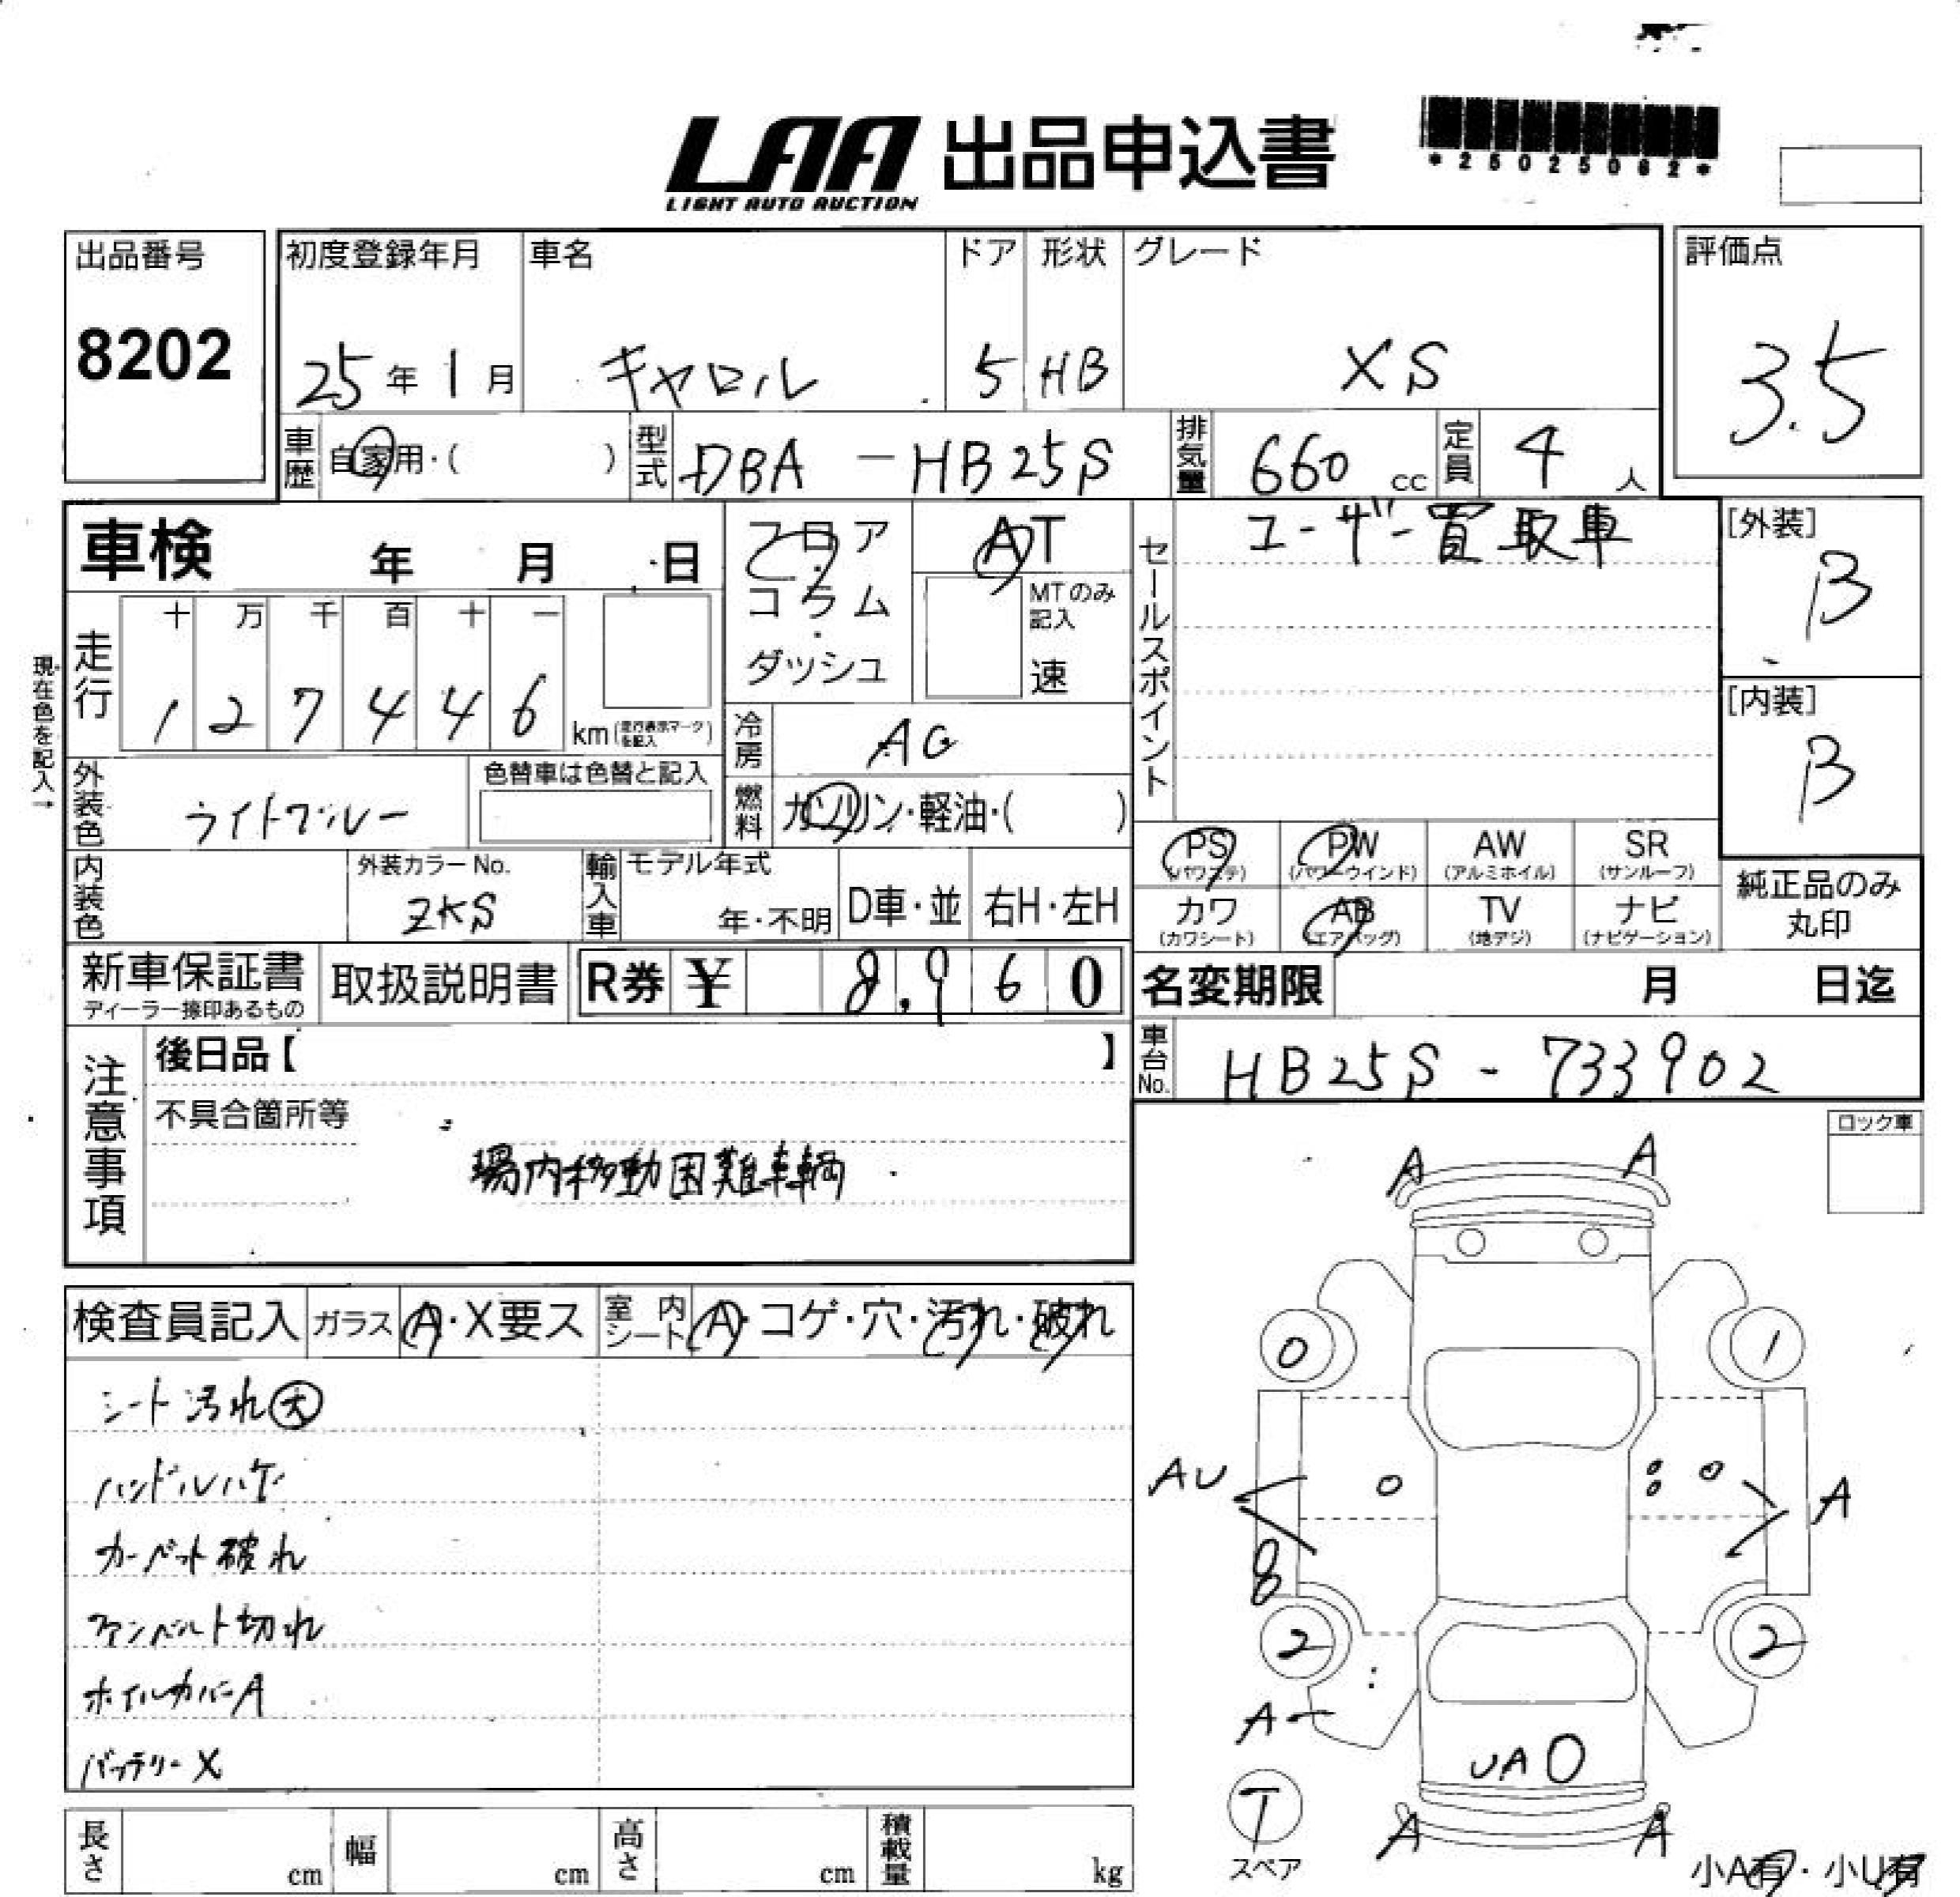 LAA 出品申込書
LIGHT AUTO AUCTION
*25025062*
出品番号
8202
初度登録年月
25年1月
車名
キャロル
ドア
5
形状
HB
グレード
XS
評価点
3.5
車歴
自家用・( )
型式
DBA-HB25S
排気量
660 cc
定員
4人
車検 年 月 日
フロア
コラム
・
ダッシュ
AT
MTのみ
記入
速
セールスポイント
ユーザー買取車
[外装]
B
[内装]
B
現在色を記入→
走行
十 万 千 百 十 一
1 2 7 4 4 6
km(走行表示マークを記入)
冷房
AC
燃料
ガソリン・軽油・( )
外装色
ライトブルー
色替車は色替と記入
内装色
外装カラーNo.
ZKS
輸入車
モデル年式
年・不明
D車・並
右H・左H
PS
(パワステ)
PW
(パワーウインド)
AW
(アルミホイル)
SR
(サンルーフ)
カワ
(カワシート)
AB
(エアバッグ)
TV
(地デジ)
ナビ
(ナビゲーション)
純正品のみ
丸印
新車保証書
ディーラー捺印あるもの
取扱説明書
R券 ¥ 8,960
名変期限 月 日迄
車台No.
HB25S-733902
注意事項
後日品【 】
不具合箇所等
場内移動困難車輌
ロック車
検査員記入
ガラス A・X要ス
室内シート A・コゲ・穴・汚れ・破れ
シート汚れ大
ハンドルハゲ
カーペット破れ
ファンベルト切れ
ホイルカバーA
バッテリーX
A A
0 1
AU A
8
2 2
A
UA
T
スペア
A A
小A有・小U有
長さ cm
幅 cm
高さ cm
積載量 kg